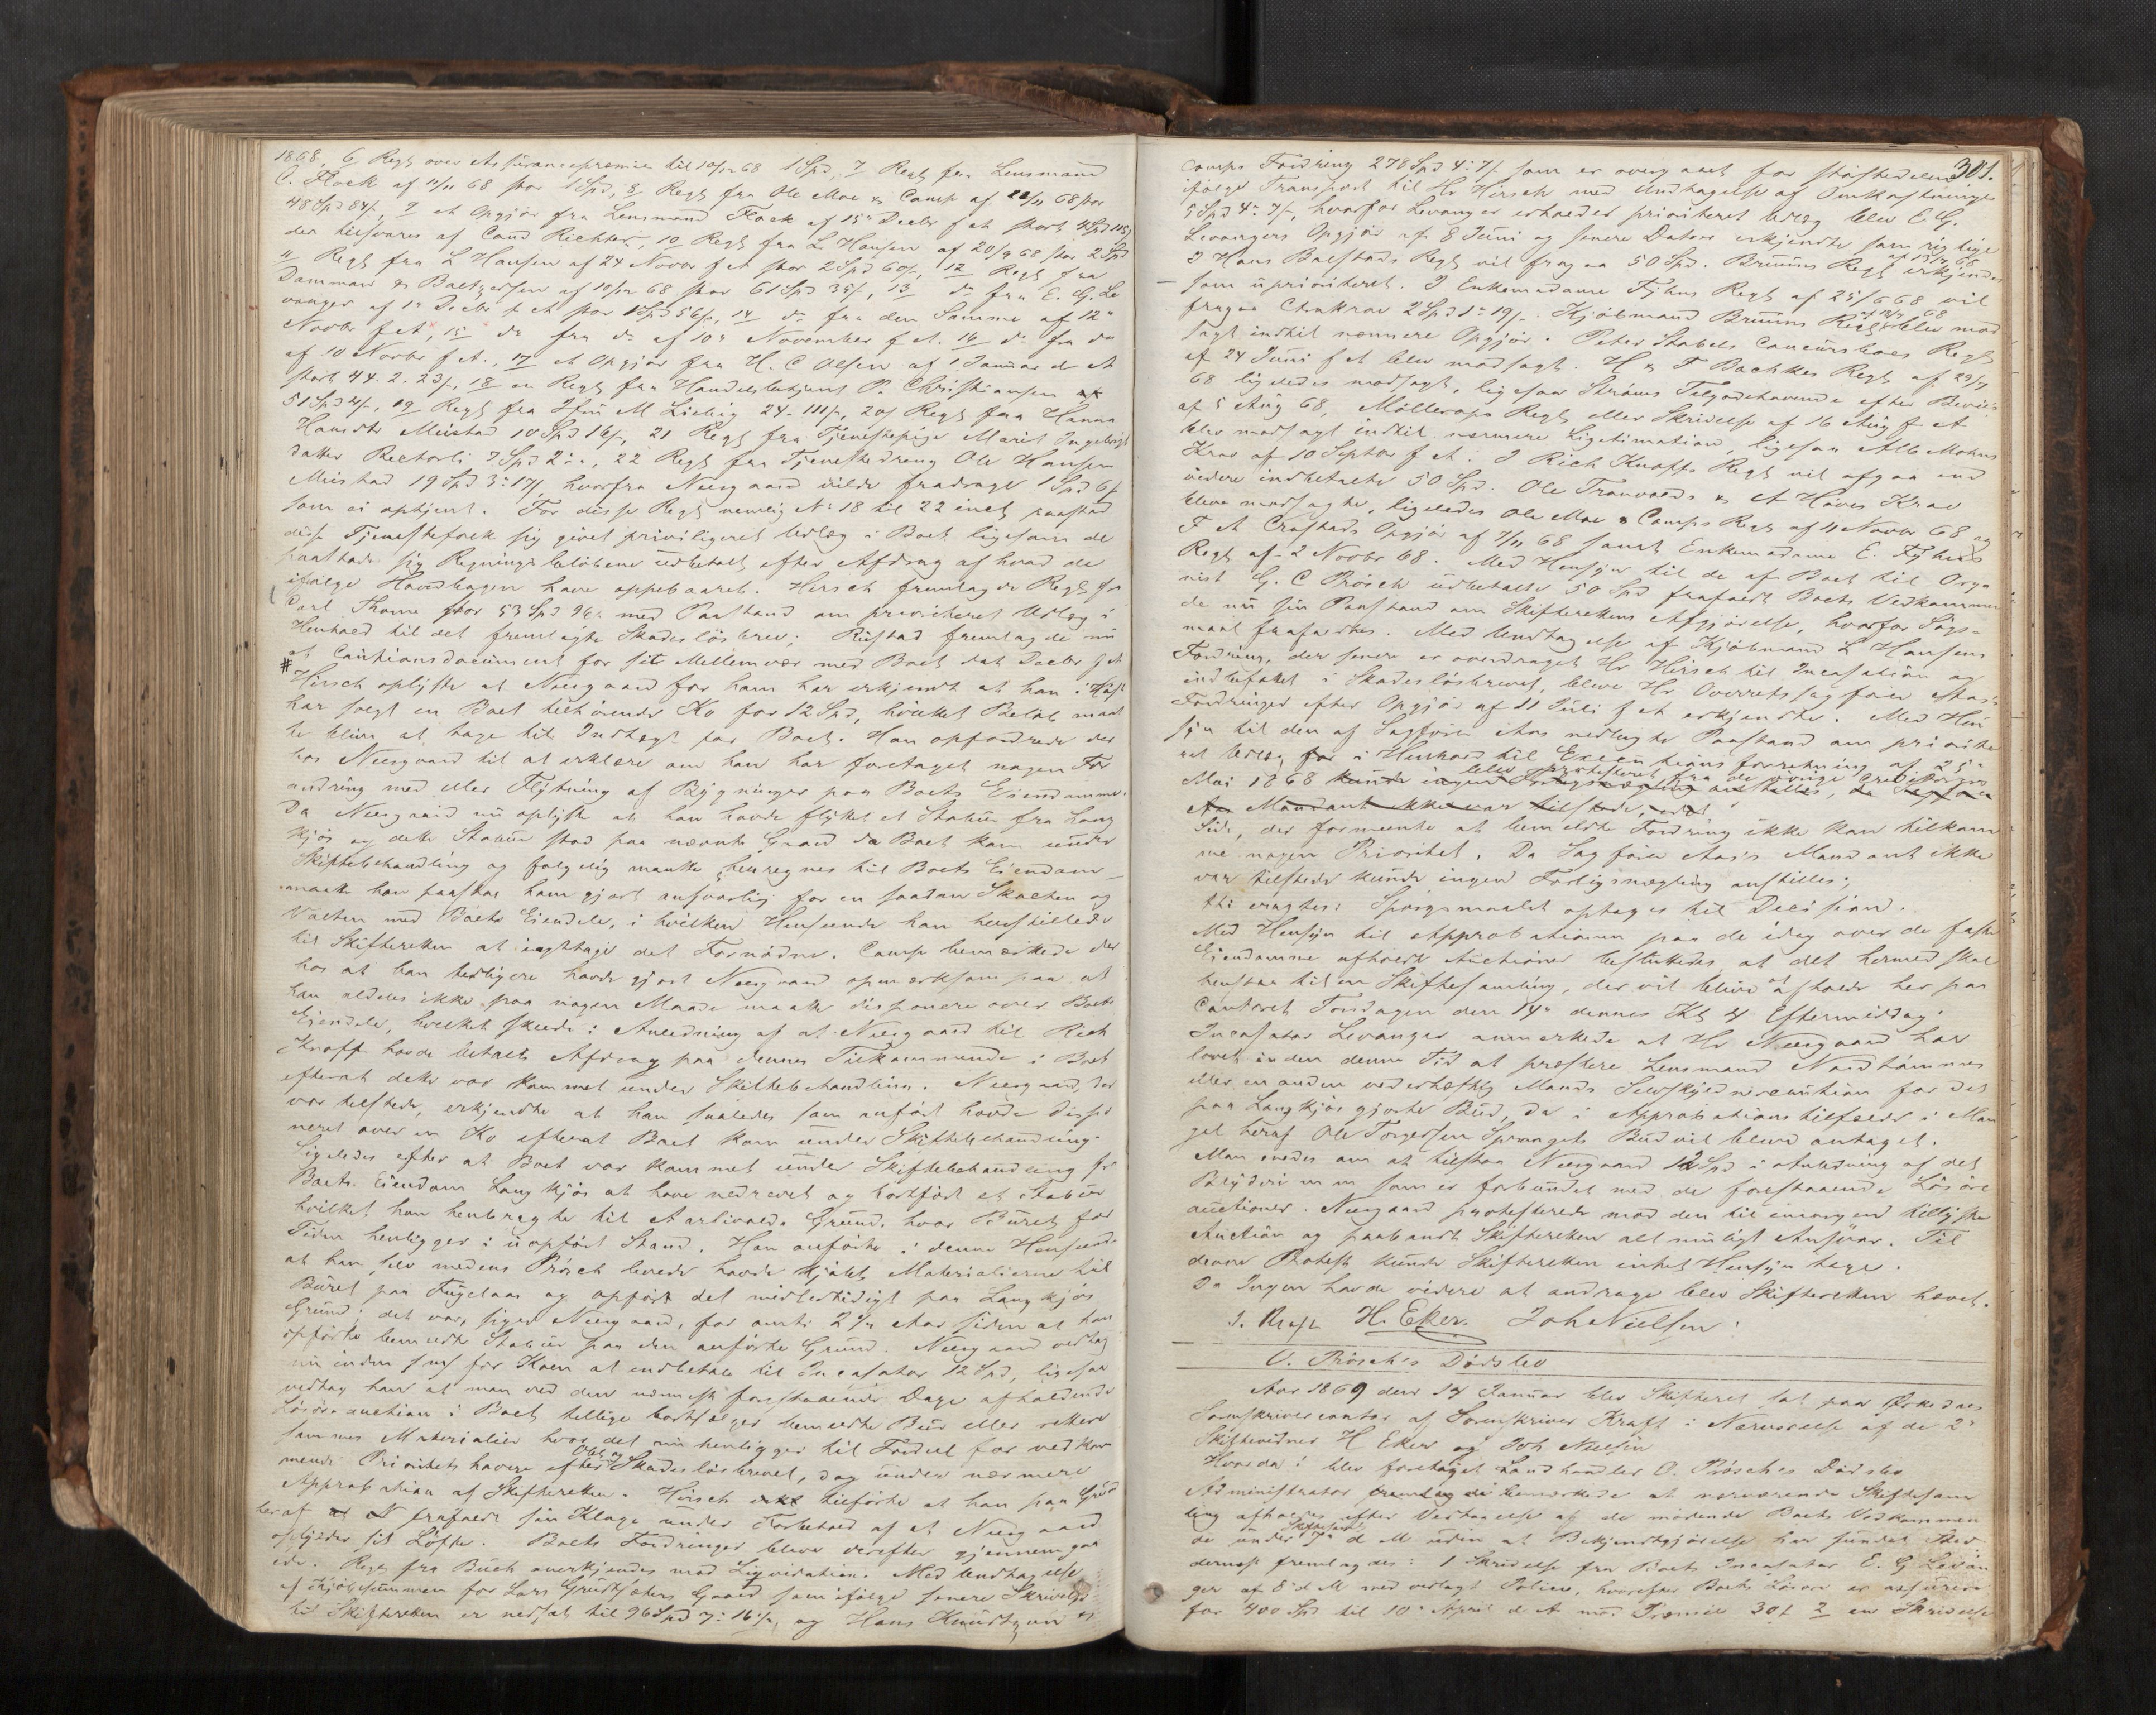 1868, 6 Regg over Assurancepræmie til 10/12 68 1 Spd, 7 Regg fra Lensmand
C. Flock af 11/11 68 stor 1 Spd, 8 Regg fra Ole Moe & Camp af 20/11 68 stor
48 Spd 84/, 9 et Opgjør fra Lensmand Flock af 15de Decbr f A stort 4 Spd 115/
der tilsvares af Cand Richter, 10 Regg fra L Hansen af 20/9 68 stor 2 Spd
11 Regg fra L Hansen af 24 Novbr f A stor 2 Spd 60/, 12 Regg fra
Dammann & Baetzersen af 10/12 68 stor 61 Spd 35/, 13 do fra E. G. Le
vanger af 1de Decbr f A stor 1 Spd 56/, 14 do fra den Samme af 12te
Novbr f A, 15 do fra do af 10de November f A. 16 do fra do
af 10 Novbr f A., 17 et Opgjør fra H. C Olsen af 1 Januar d A
stort 44. 2. 23/, 18 en Regg fra Handelsbetjent P. Christiansen
51 Spd 4/, 19 Regg fra Jfru M Liebig 24 - 111/, 20 Regg fra Hanna
Hansdtr Meistad 10 Spd 16/, 21 Regg fra Tjenestepige Marit Ingebrigts
datter Rectorli 7 Spd 2: ", 22 Regg fra Tjenestedreng Ole Hansen
Meistad 19 Spd 3: 17/ hvorfra Neergaard vilde fradrage 1 Spd 6/
som ei optjent. For disse Regg nemlig No 18 til 22 incl paastod
disse Tjenestefolk sig givet priviligeret Udlæg i Boet ligesom de
paastode sig Regningsbeløbene udbetalt efter Afdrag af hvad de
ifølge Haandbogen have oppebaaret. Hirsch fremlagde Regg fra
Carl Thonne stor 53 Spd 96/ med Paastand om prioriteret Udlæg i
Henhold til det fremlagte Skadesløsbrev; Rustad fremlagde nu
et Cautionsdocument for sit Mellemvær med Boet dat Decbr f A
# Hirsch oplyste at Neergaard for ham har erkjendt at han i Høst
har solgt en Boet tilhørende Ko for 12 Spd, hvilket Beløb maat
te blive at tage til Indtægt for Boet. Han opfordrede der
hos Neergaard til at erklære om han har foretaget nogen For
andring med eller Flytning af Bygninger paa Boets Eiendomme.
Da Neergaard nu oplyste at han havde flyttet et Stabur fra Lang
kjøs og dette Stabur stod paa nævnte Grund da Boet kom under
Skiftebehandling og følgelig maatte henregnes til Boets Eiendom
maatte han paastaa ham gjort ansvarlig for en saadan Skalten og
Valten med Boets Eiendele, i hvilken Henseende han henstillede
til Skifteretten at iagttage det Fornødne. Camp bemærkede der
hos at han tidligere havde gjort Neergaard opmærksom paa at
han aldeles ikke paa nogen Maade maatte disponere over Boets
Eiendele, hvilket skede i Anledning af at Neergaard til Rich
Knoff havde betalt Afdrag paa dennes Tilkommende i Boet
efterat dette var kommet under Skiftebehandling. Neergaard, der
var tilstede, erkjendte at han saaledes som anført havde dispo
neret over en Ko efterat Boet kom under Skiftebehandling.
Ligeledes efter at Boet var kommet under Skiftebehandling fra
Boets Eiendom Langkjøs at have nedrevet og bortført et Stabur
hvilket han henbragte til Aarlivolds Grund, hvor Buret for
Tiden henligger i uopført Stand. Han anførte i denne Henseende
at han selv medens Prösch levede havde kjøbt Materialierne til
Buret paa Fuglaas og opført det midlertidigt paa Langkjøs
Grund; det var, siger Neergaard, for omtr 2 1/2 Aar siden at han
opførte bemeldte Stabur paa den anførte Grund. Neergaard vedtog
nu inden for Koen at indbetale til Incasator 12 Spd, ligesaa
vedtog han at man ved den nærmest forestaaende Dage afholdende
Løsøreauction i Boet tillige bortsælges bemeldte Bur eller rettere
sammes Materialier hvor det nu henligger til Fordeel for vedkom
mende Prioritetshavere efter Obl og Skadesløsbrevet, dog under nærmere
Approbation af Skifteretten. Hirsch tilførte at han paa Grund
heraf frafaldt sin Klage under Forbehold af at Neergaard
opfylder sit Løfte. Boets Fordringer bleve derefter gjennemgaa
ede. Regg fra Buch anerkjendes mod Ligvidation. Med Undtagelse
af Kjøbesummen for Lars Grøtsæters Gaard som ifølge senere Skrivelse
til Skifteretten er nedsat til 96 Spd 3: 16/, og Hans Knudtzon &
301.
Camps Fordring 278 Spd 4: 7/ som er overgaaet for størstedelen
ifølge Transport til Hr Hirsch med Undtagelse af Omkostninger
5 Spd 4: 7/, hvorfor Levanger erholdes prioriteret Udlæg blev E. G.
Levangers Opgjør af 8 Juni og senere Datoer erkjendte som rigtige
I Hans Balstads Regg vil fragaa 50 Spd. Bruuns Regg erkjendes
som uprioriteret. I Enkemadame Fyhns Regg af 25/6 68 vil
fragaa Contrakrav 2 Spd 1: 19/. Kjøbmand Bruuns Regg blev mod
sagt indtil nærmere Opgjør. Peter Stabels Concursboes Regg
af 24 Juni f A blev modsagt. H & F Bachkes Regg af 29/7
68 ligeledes modsagt, ligesaa Strøms Tilgodehavende efter Beviis
af 5 Aug 68, Møllerops Regg eller Skrivelse af 16 Aug f A
blev modsagt indtil nærmere Ligitimation, ligesaa Alb Mohns
Krav af 10 Septbr f A. I Rich Knoffs Regg vil afgaa end
videre indbetalte 50 Spd. Ole Tranvaads & A Høves Krav
bleve modsagte, ligeledes Ole Moe & Camps Regg af 11 Novbr 68 og
F A Crostads Opgjør af 7/11 68 samt Enkemadame E. Fyhns
Regg af 2 Novbr 68. Med Hensyn til de af Boet til Orga
nist G. C Prösch udbetalte 50 Spd frafaldt Boets Vedkommen
de nu sin Paastand om Skifterettens Afgjørelse, hvorfor Søgs-
maal frafaldtes. Med Undtagelse af Kjøbmand L Hansens
Fordring, der senere er overdraget Hr Hirsch til Incasation og
indbefattet i Skadesløsbrevet, bleve Hr Overretssagfører Aas's
Fordringer efter Opgjør af 11 Juli f A erkjendte. Med Hen
syn til den af Sagfører Aas nedlagte Paastand om priorite
ret Udlæg i Henhold til Executionsforretning af 25de
Mai 1868 blev protesteret fra de øvrige Creditorers
Side, der formeente at bemeldte Fordring ikke kan tilkom
me nogen Prioritet. Da Sagfører Aas's Mandant ikke
var tilstede kunde ingen Forligsmægling anstilles;
thi eragtes: Spørgsmaalet optages til Decision.
Med Hensyn til Approbationen paa de idag over de faste
Eiendomme afholdte Auctioner besluttedes at det hermed skal
henstaa til en Skiftesamling, der vil blive at afholde her paa
Contoret Torsdagen den 14de dennes Kl 4 Eftermiddag.
Incasator Levanger anmærkede at Hr Neergaard har
lovet inden denne Tid at præstere Lensmand Nordtømmes
eller en anden vederhæftig Mands Selvskyldnercaution for det
paa Langkjøs gjorte Bud, da i Approbationstilfælde i Man
gel heraf Ole Torgersen Sprangets Bud vil blive antaget.
Man enedes om at tilstaa Neergaard 12 Spd i Anledning af det
Bryderi m m som er forbundet med de forestaaende Løsøre
auctioner. Neergaard protesterede mod den til imorgen tillyste
Auction og paabandt Skifteretten alt muligt Ansvar. Til
denne Protest kunde Skifteretten intet Hensyn tage.
Da Ingen havde videre at andrage blev Skifteretten hævet.
J. Kraft H. Eker. Joh Nielsen
O. Prösch's Dødsbo
Aar 1869 den 14 Januar blev Skifteret sat paa Ørkedals
Sorenskrivercontor af Sorenskriver Kraft i Nærværelse af de 2de
Skiftevidner H Eker og Joh Nielsen
Hvorda: blev foretaget Landhandler O. Prösch's Dødsbo
Administrator bemærkede at nærværende Skiftesam
ling afholdes efter Vedtagelse af de mødende Boets Vedkommen
de under Skiftesaml 7de d M uden at Bekjendtgjørelse har fundet Sted.
dernæst fremlagdes: 1 Skrivelse fra Boets Incasator E. G. Levan
ger af 8 d M med vedlagt Police, hvorefter Boets Løsøre er assureret
for 400 Spd til 10de April d A mod Præmie 30/ 2 en Skrivelse